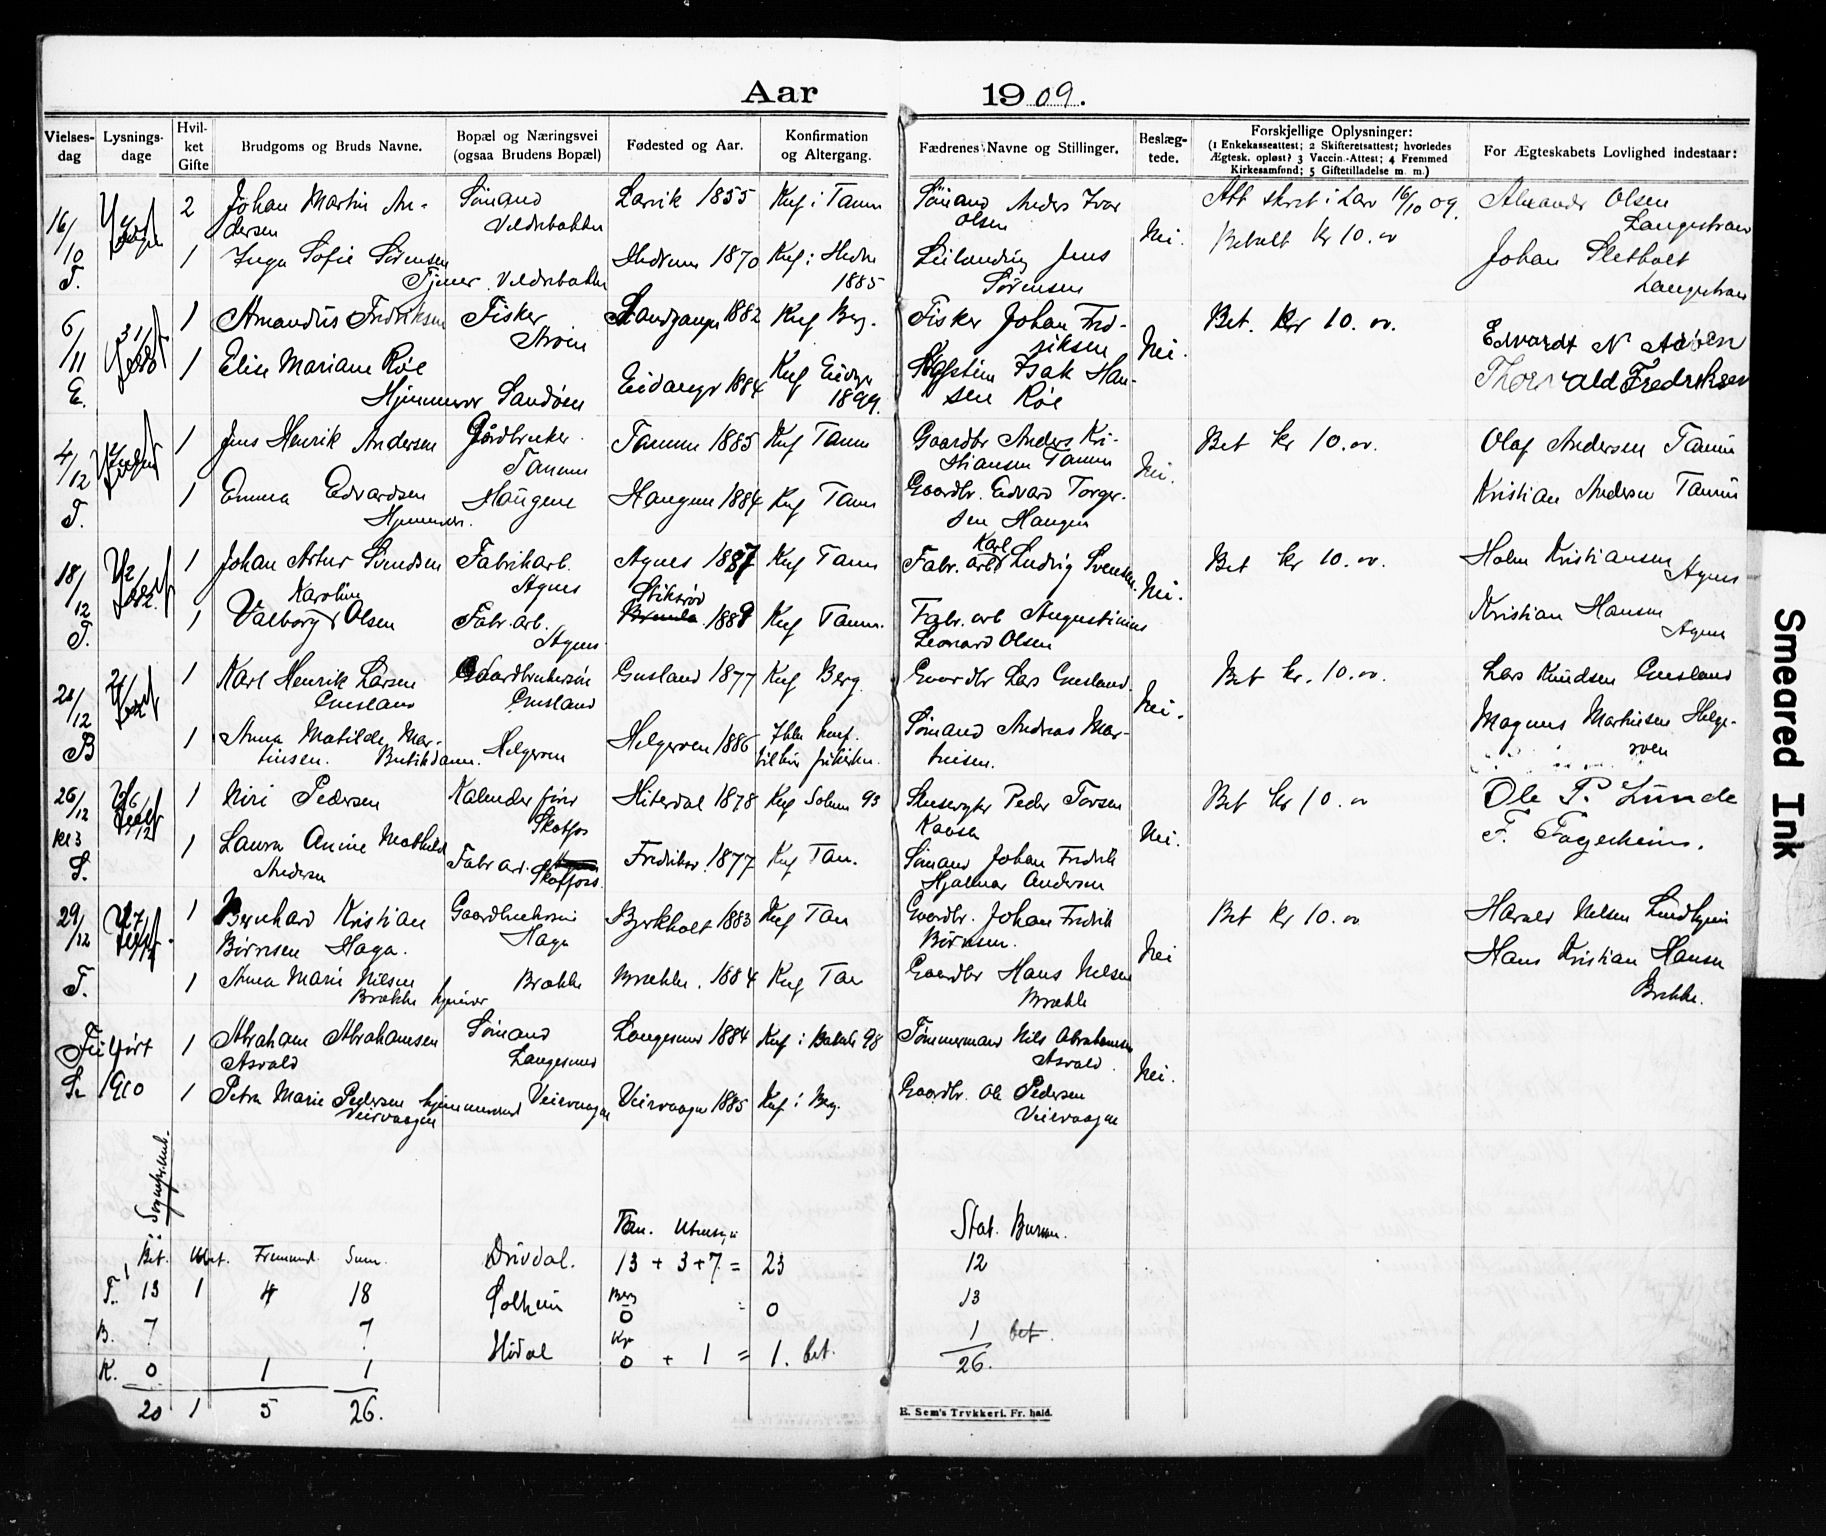 Aar 1909.
Vielses-dag
Lysnings-dage
Hvil-ket Gifte
Brudgoms og Bruds Navne.
Bopæl og Næringsvei (ogsaa Brudens Bopæl)
Fødested og Aar.
Konfirmation og Altergang.
Fædrenes Navne og Stillinger.
Beslæg-tede.
Forskjellige Oplysninger:
(1 Enkekasseattest; 2 Skifteretsattest; hvorledes Ægtesk. opløst? 3 Vaccin.-Attest; 4 Fremmed Kirkesamfond; 5 Giftetilladelse m. m.)
For Ægteskabets Lovlighed indestaar:
16/10 T.
2 Johan Martin An-dersen Sømand Veldrebakken Larvik 1855 Knf i Tanum Sømand Anders Ivar Olsen Nei. Att skret i Larv 16/10 09. Betalt Kr 10.00 Alexander Olsen Langestrand
1 Inga Sofie Sørensen Tjener Veldrebakken Hedrum 1870 Knf i Hedr 1885 Leilænding Jens Sørensen Johan Sletholt Langestran
6/11 E.
1 Amandus Fredriksen Fisker Arøen 1882 Knf Berg. Fisker Johan Fred-riksen Nei. Bet. Kr 10.00. Edvardt N Arøen
1 Elise Mariane Røe Hjemmevær Sandøen Eidanger 1884 Knf Eidgr 1899. Isak Han-sen Røe Thorvald Fredriksen
4/12 T.
1 Jens Henrik Andersen Gårdbruker Tanum Tanum 1885 Knf Tanum Gaardbr Anders Kri-stiansen Tanum Nei. Bet Kr 10.00. Olaf Andersen Tanum
1 Emma Edvardsen Hjemmevær. Haugene Haugene 1884 Knf Tanm Gaardbr. Edvard Torger-sen Haugen Kristian Andersen Tanum
18/12 T.
1 Johan Artur Svendsen Fabrikarb. Agnes Agnes 1887 Knf Tanm Fabr. arb Karl Ludvig Svensen Nei. Bet Kr 10.00. Holm Kristiansen Agnes
1 Valborg Karoline Olsen Fabr. arb. Agnes Knf Tanum. Fabr. arb Augustinius Leonard Olsen Kristian Hansen Agnes
12 B
1 Karl Henrik Larsen Gusland Gaardbrukersøn Gusland Gusland 1877 Knf Berg. Gaardbr Lars Gusland. Nei. Bet Kr. 10.00. Lars Knudsen Gusland
1 Anna Matilde Mar-tinsen. Butikdame. Helgeroen Helgeroen 1886 Ikke knf. Sømand Andreas Mar-tinsen. Magnus Martinsen Helge-roen
26/12 Kl 3 S.
1 Niri Pedersen Kalenderfører Skotfos Hiterdal 1878 Knf Solum 93 Peder Torsen Nei. Bet Kr 10.00 Ole P. Lunde
1 Laura Anine Mathild Andersen Fabr ar. Skotfoss. 1877 Knf Tan. Sømand Johan Fredrik Hjalmar Andersen F. Fagerheim.
29/12 T.
1 Bernhard Kristian Børresen Haga. Gaardbrukersøn Haga Byrkholt 1883 Knf Tan Gaardbr. Johan Fredrik Børresen. Nei Bet Kr 10.00 Harald Nilsen Lindhjem
1 Anna Marie Nilsen Brække hjemvær Brække Brække. 1884 Knf Tan Gaardbr Hans Nilsen Brække Hans Kristian Hansen Brekke.
1 Abraham Abrahamsen Asvald Sømand Langesund Langesund 1884 Knf i Bakle 98 Tømmermand Nils Abrahamsen Asvald. Nei.
1910 1 Petra Marie Pedersen Veiervaagen hjemmeværende Veiervaagen Veiervaagen 1885 Knf i Berg. Gaardbr. Ole Pedersen Veiervaagen
Bet. Ubet. Fremmed. Sum.
T. 13 1 4 18
B. 7 7
K. 0 1 1
20 1 5 26.
Tan. Utensogn
Drivdal. 13 + 3 + 7 = 23
Solheim Berg 0 = 0
Hødal 0 + 1 = 1. bet.
12
13
1 bet.
26.
E. Sem's Trykkeri. Fr.hald.
Smeared Ink